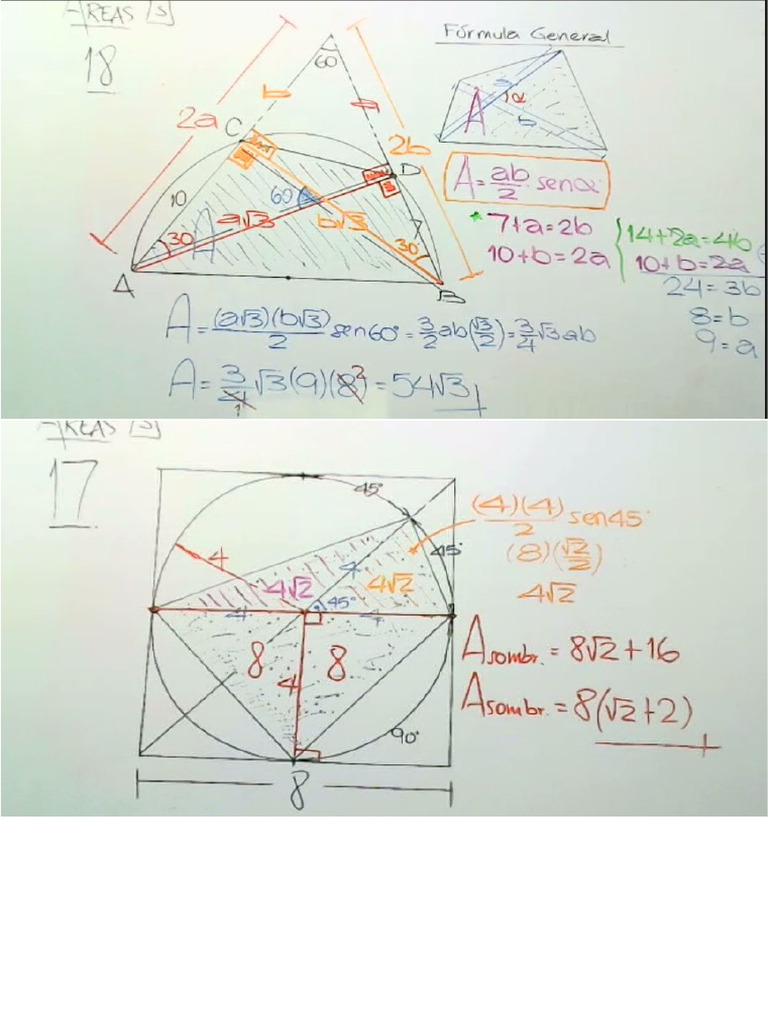 AREAS [3]
18
Fórmula General
60
b
a
2a
C
2b
D
a
α
b
A
A = ab/2 senα
10
60
7
A
30
a√3
b√3
30
A
B
* 7+a=2b
10+b=2a
14+2a=4b
10+b=2a
24=3b
8=b
9=a
A = (a√3)(b√3)/2 sen60° = 3/2 ab(√3/2) = 3/4 √3ab
A = 3/4 √3(9)(8) = 54√3
1
2
AREAS [3]
17
45°
(4)(4)/2 sen45°
(8)(√2/2)
4√2
4
4
45°
4√2
4√2
4
45°
4
8
8
4
A sombr. = 8√2+16
A sombr. = 8(√2+2)
90°
8